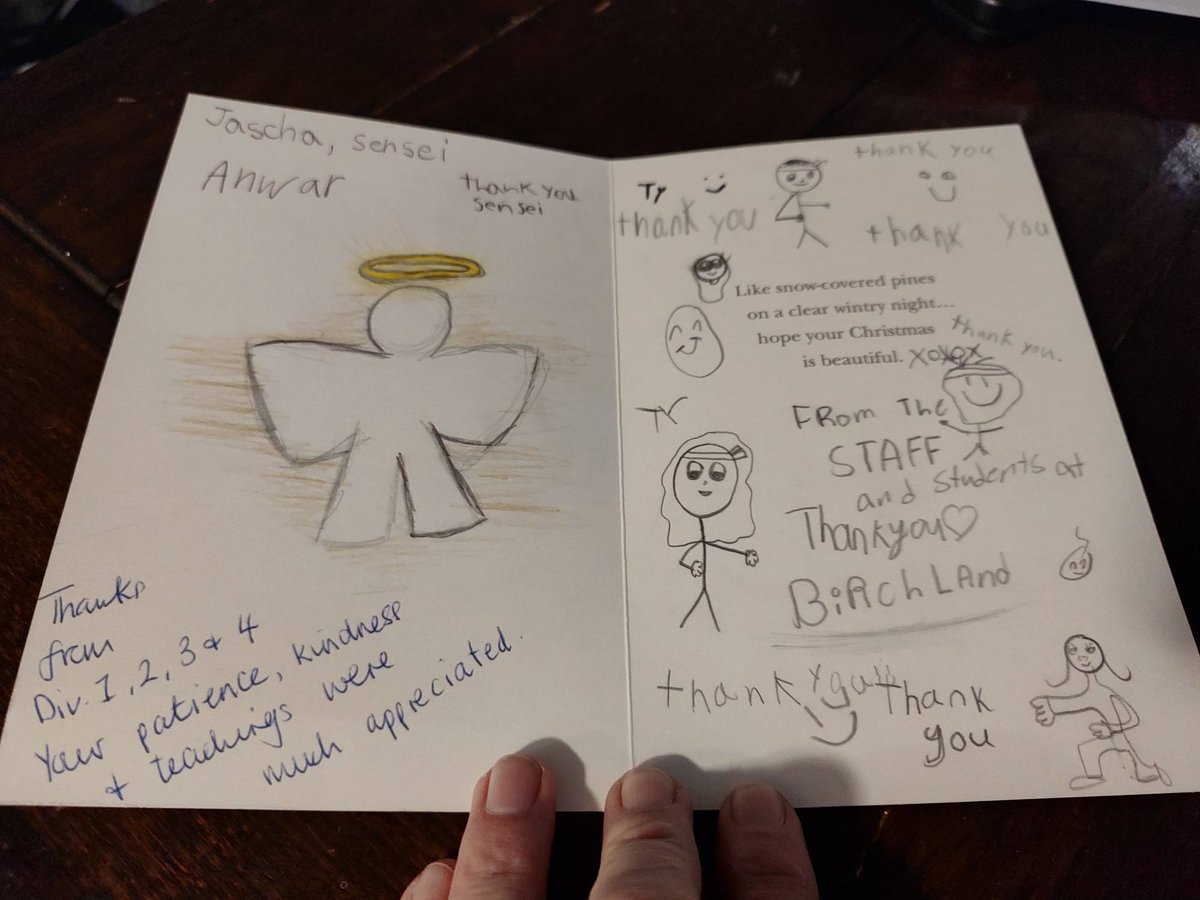 Jascha, sensei
Anwar
thank you
sensei
Thanks
from
Div. 1, 2, 3 & 4
Your patience, kindness
& teachings were
much appreciated.
thank you
Ty
thank you
thank you
Like snow-covered pines
on a clear wintry night...
hope your Christmas
is beautiful. xoxox
thank you.
TY
FRom The
STAFF
and Students at
Thankyou♡
BiRCh LAnd
thank you
thank
you